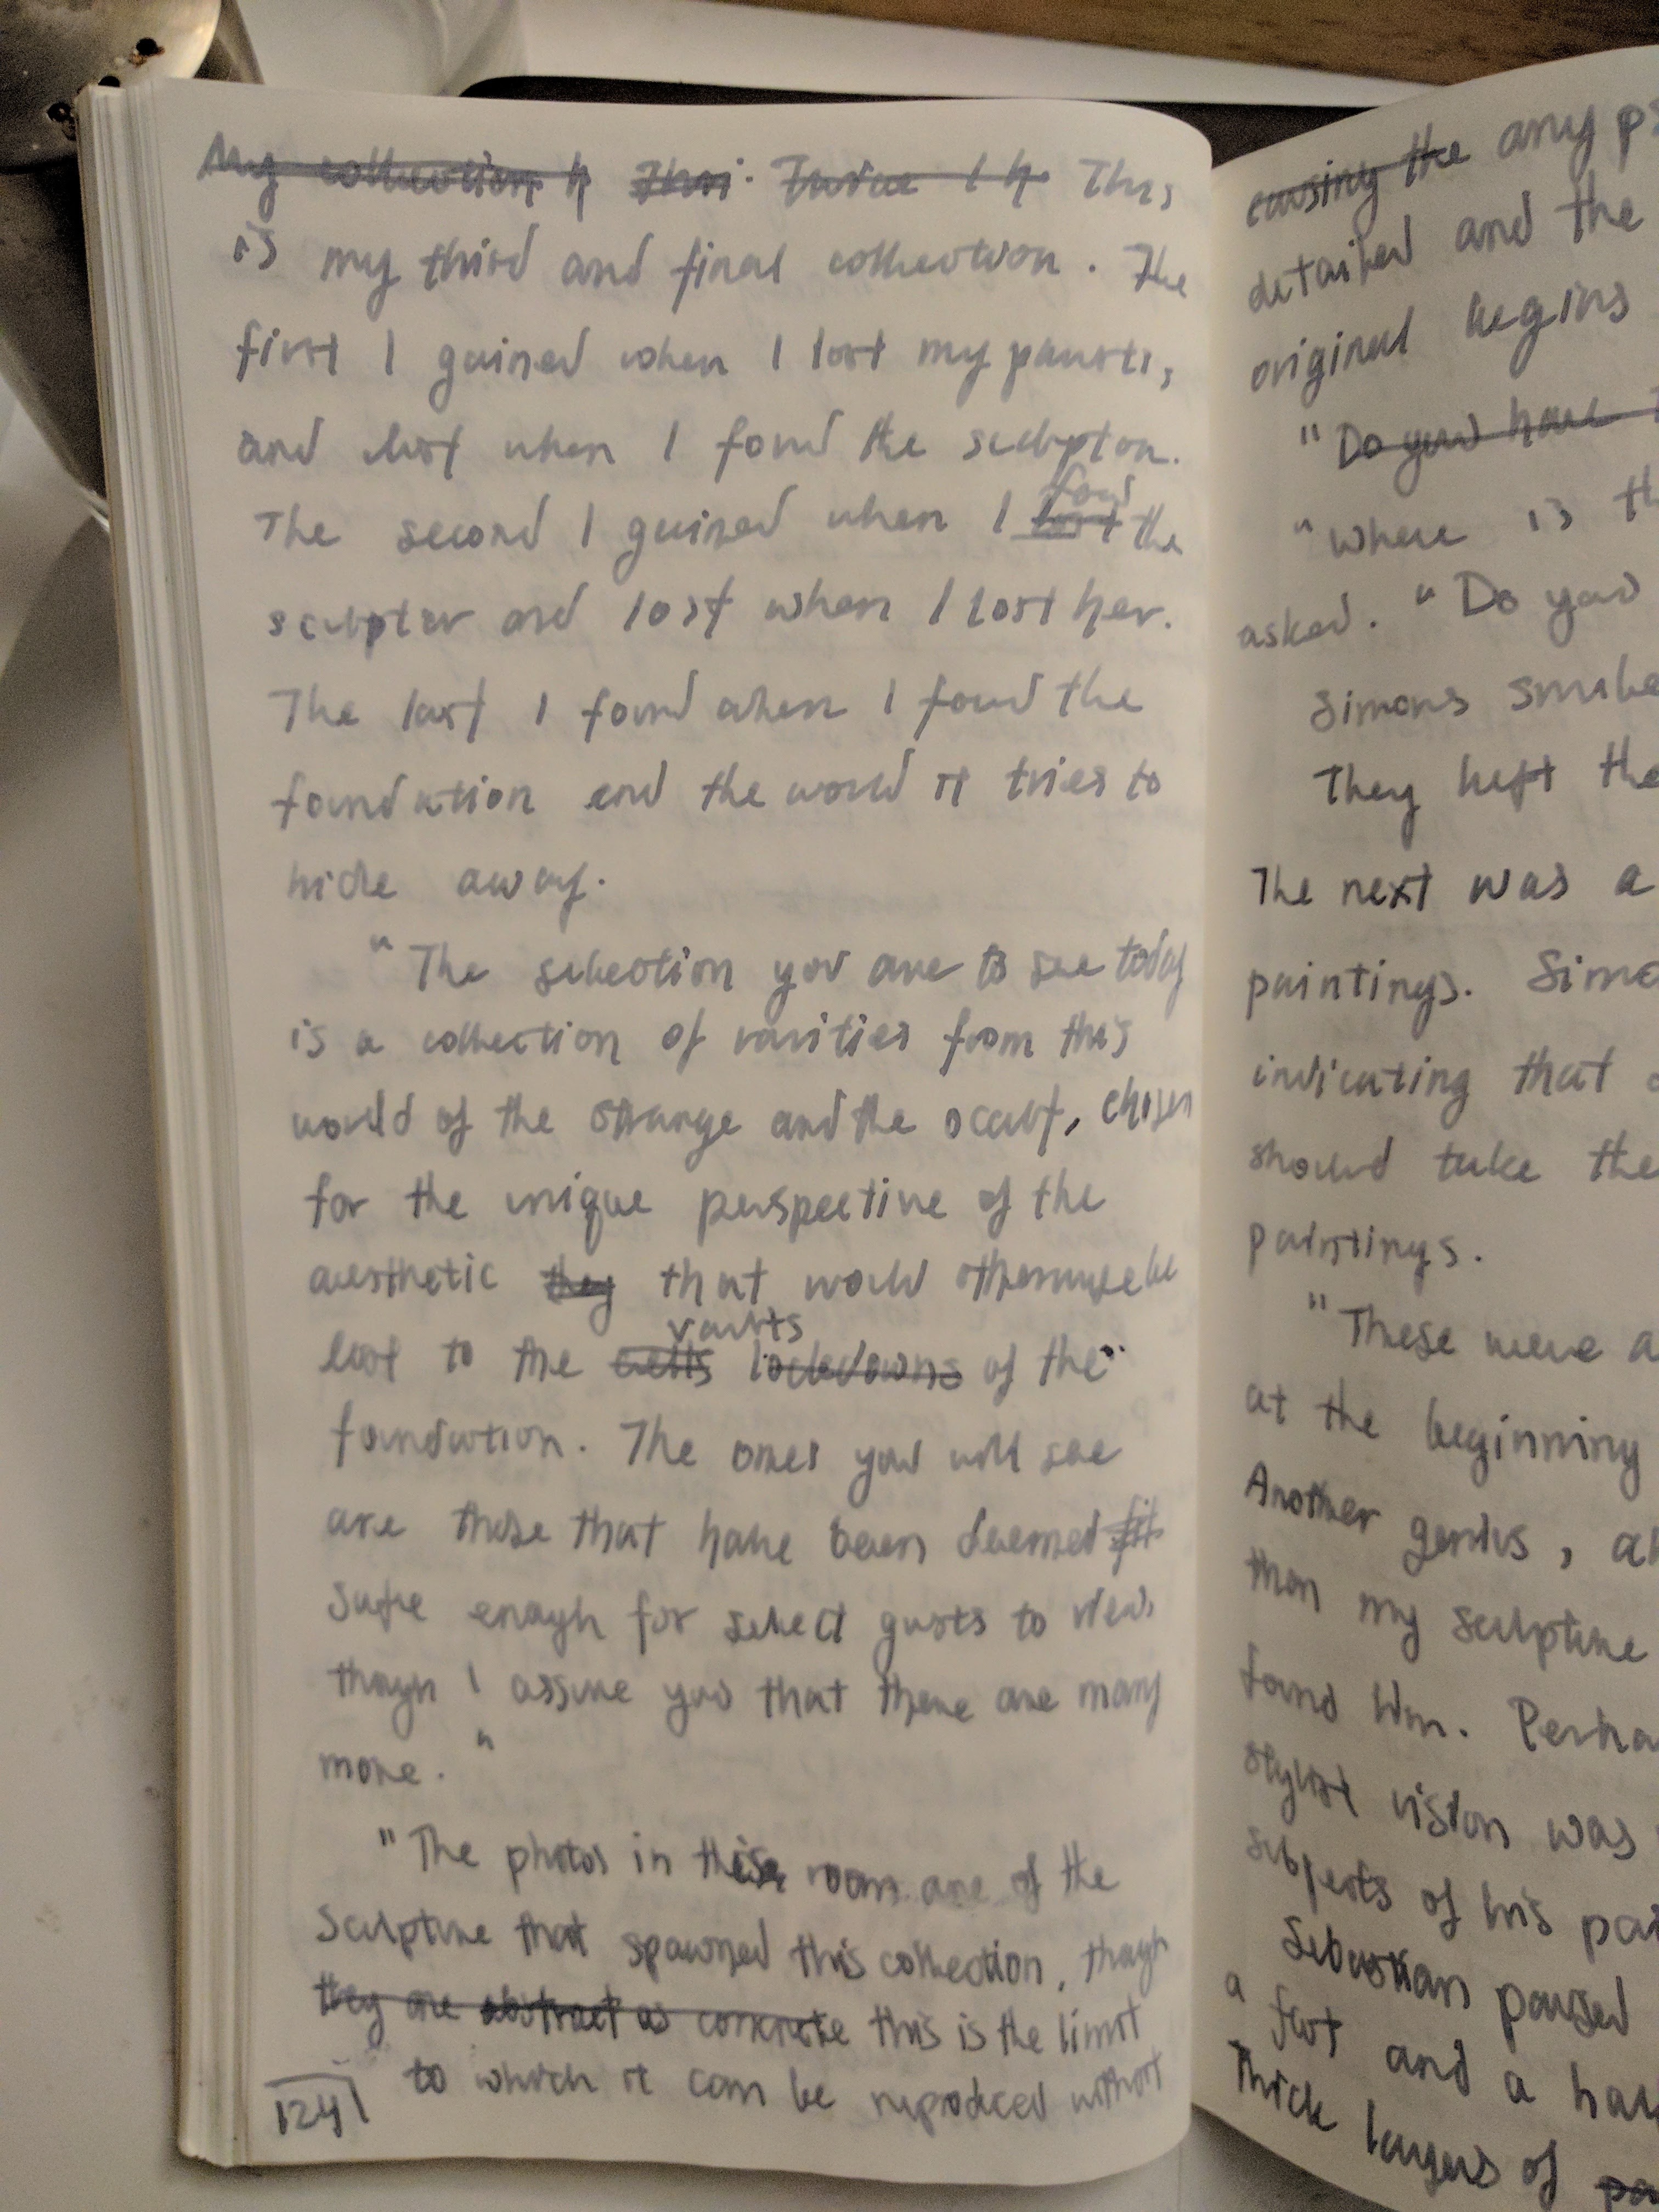 My collection h Thri. Twice I h This
is my third and final collection. The
first I gained when I lost my parents,
and lost when I found the sculptor.
The second I gained when I lost found the
sculptor and lost when I lost her.
The last I found when I found the
foundation and the world it tries to
hide away.
"The selection you are to see today
is a collection of rarities from this
world of the strange and the occult, chosen
for the unique perspective of the
aesthetic they that would otherwise be
lost to the cells lockdowns vaults of the
foundation. The ones you will see
are those that have been deemed fit
safe enough for select guests to view
though I assure you that there are many
more."
"The photos in these room are of the
sculpture that spawned this collection, though
they are abstract as concrete this is the limit
to which it can be reproduced without
124
causing the any
detailed and the
original begins
"Do you have
"Where is
asked. "Do you
Simons
They left the
The next was a
paintings.
indicating that
should take the
paintings.
"These were
at the beginning
Another genius,
than my sculpture
found him.
stylist vision was
subjects of his
Sebastian paused
a foot and a
thick layers of